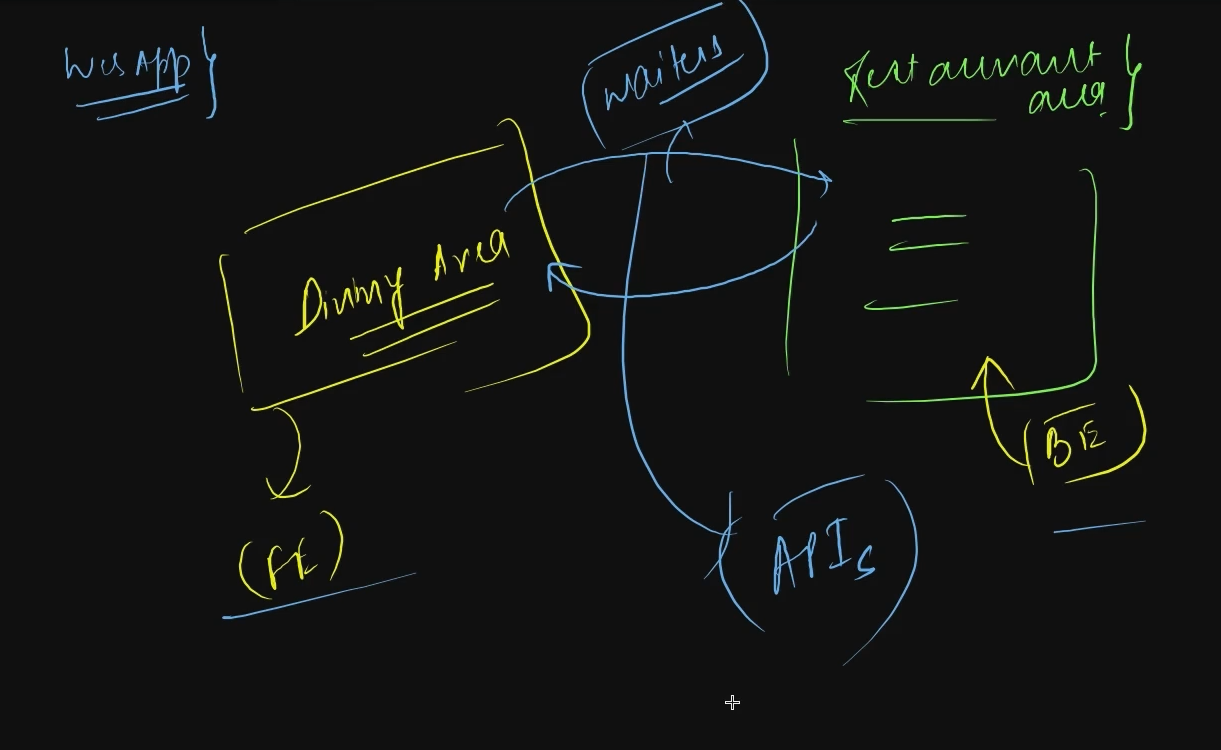 Web App
waiters
Restaurant
area
Dining Area
BE
(FE)
APIs